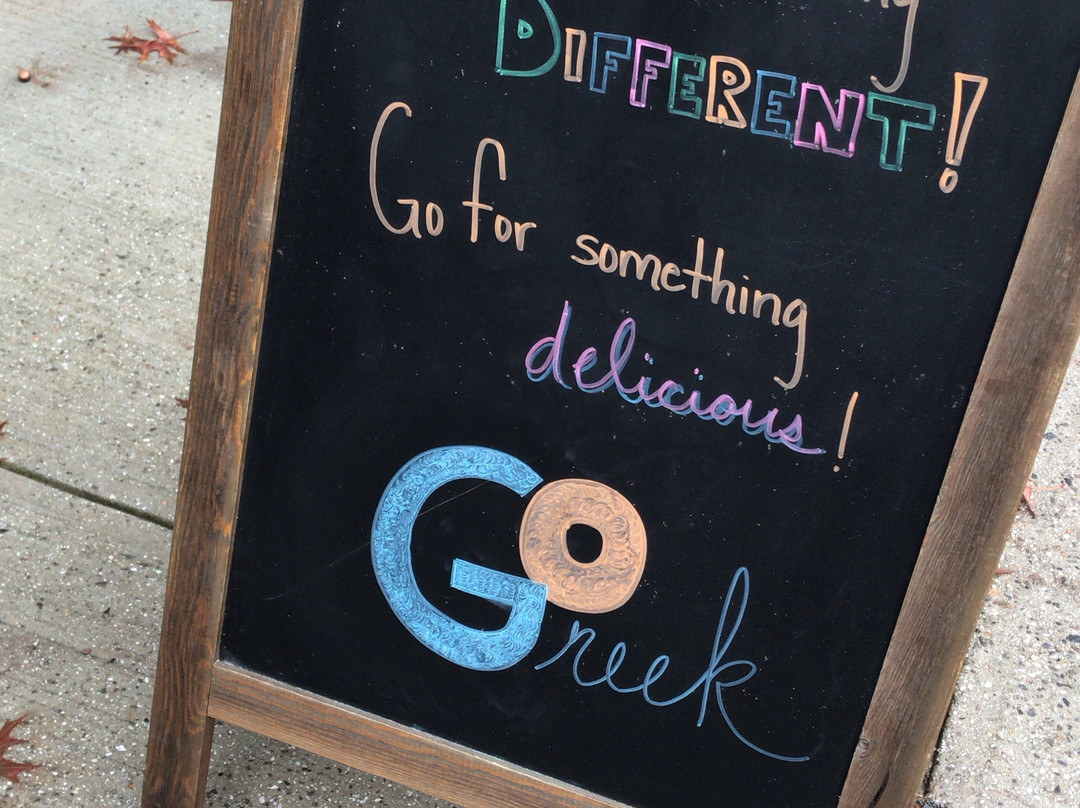 DIFFERENT!
Go for something
delicious!
GO
Greek